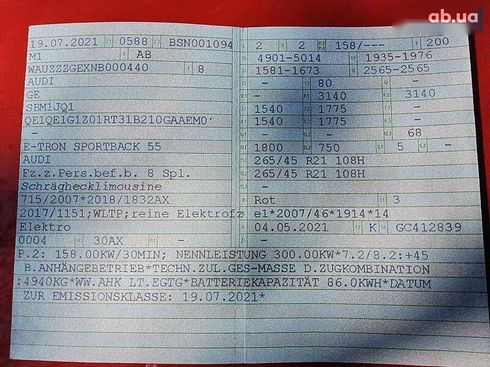 ab.ua
19.07.2021 0588 BSN001094 2 2 158/--- 200
M1 AB 4901-5014 1935-1976
WAUZZZGEXNB000440 8 1581-1673 2565-2565
AUDI - 80 -
GE - 3140 3140
SBM1JQ1 1540 1775 -
QE1QE1G1Z01RT31B210GAAEM0 1540 1775 -
- - - 68
E-TRON SPORTBACK 55 1800 750 5 -
AUDI 265/45 R21 108H
Fz.z.Pers.bef.b. 8 Spl. 265/45 R21 108H
Schräghecklimousine -
715/2007*2018/1832AX Rot 3
2017/1151;WLTP;reine Elektrofz e1*2007/46*1914*14
Elektro 04.05.2021 K GC412839
0004 30AX - -
P.2: 158.00KW/30MIN; NENNLEISTUNG 300.00KW*7.2/8.2:+45
B.ANHÄNGEBETRIEB*TECHN.ZUL.GES-MASSE D.ZUGKOMBINATION
:4940KG*WW.AHK LT.EGTG*BATTERIEKAPAZITÄT 86.0KWH*DATUM
ZUR EMISSIONSKLASSE: 19.07.2021*